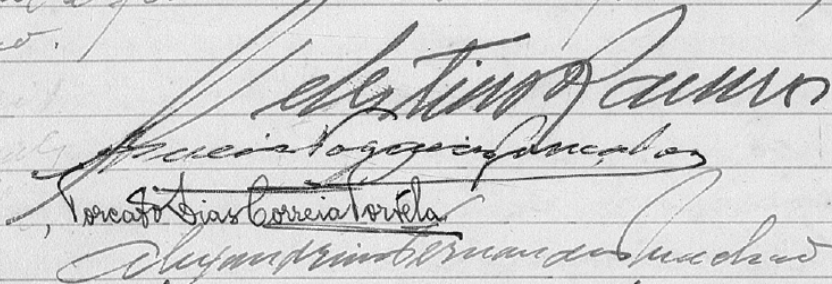 Celestino Ramos
Gonçalves
Torcato Dias Correia Portela
Alexandrino Fernandes Machado